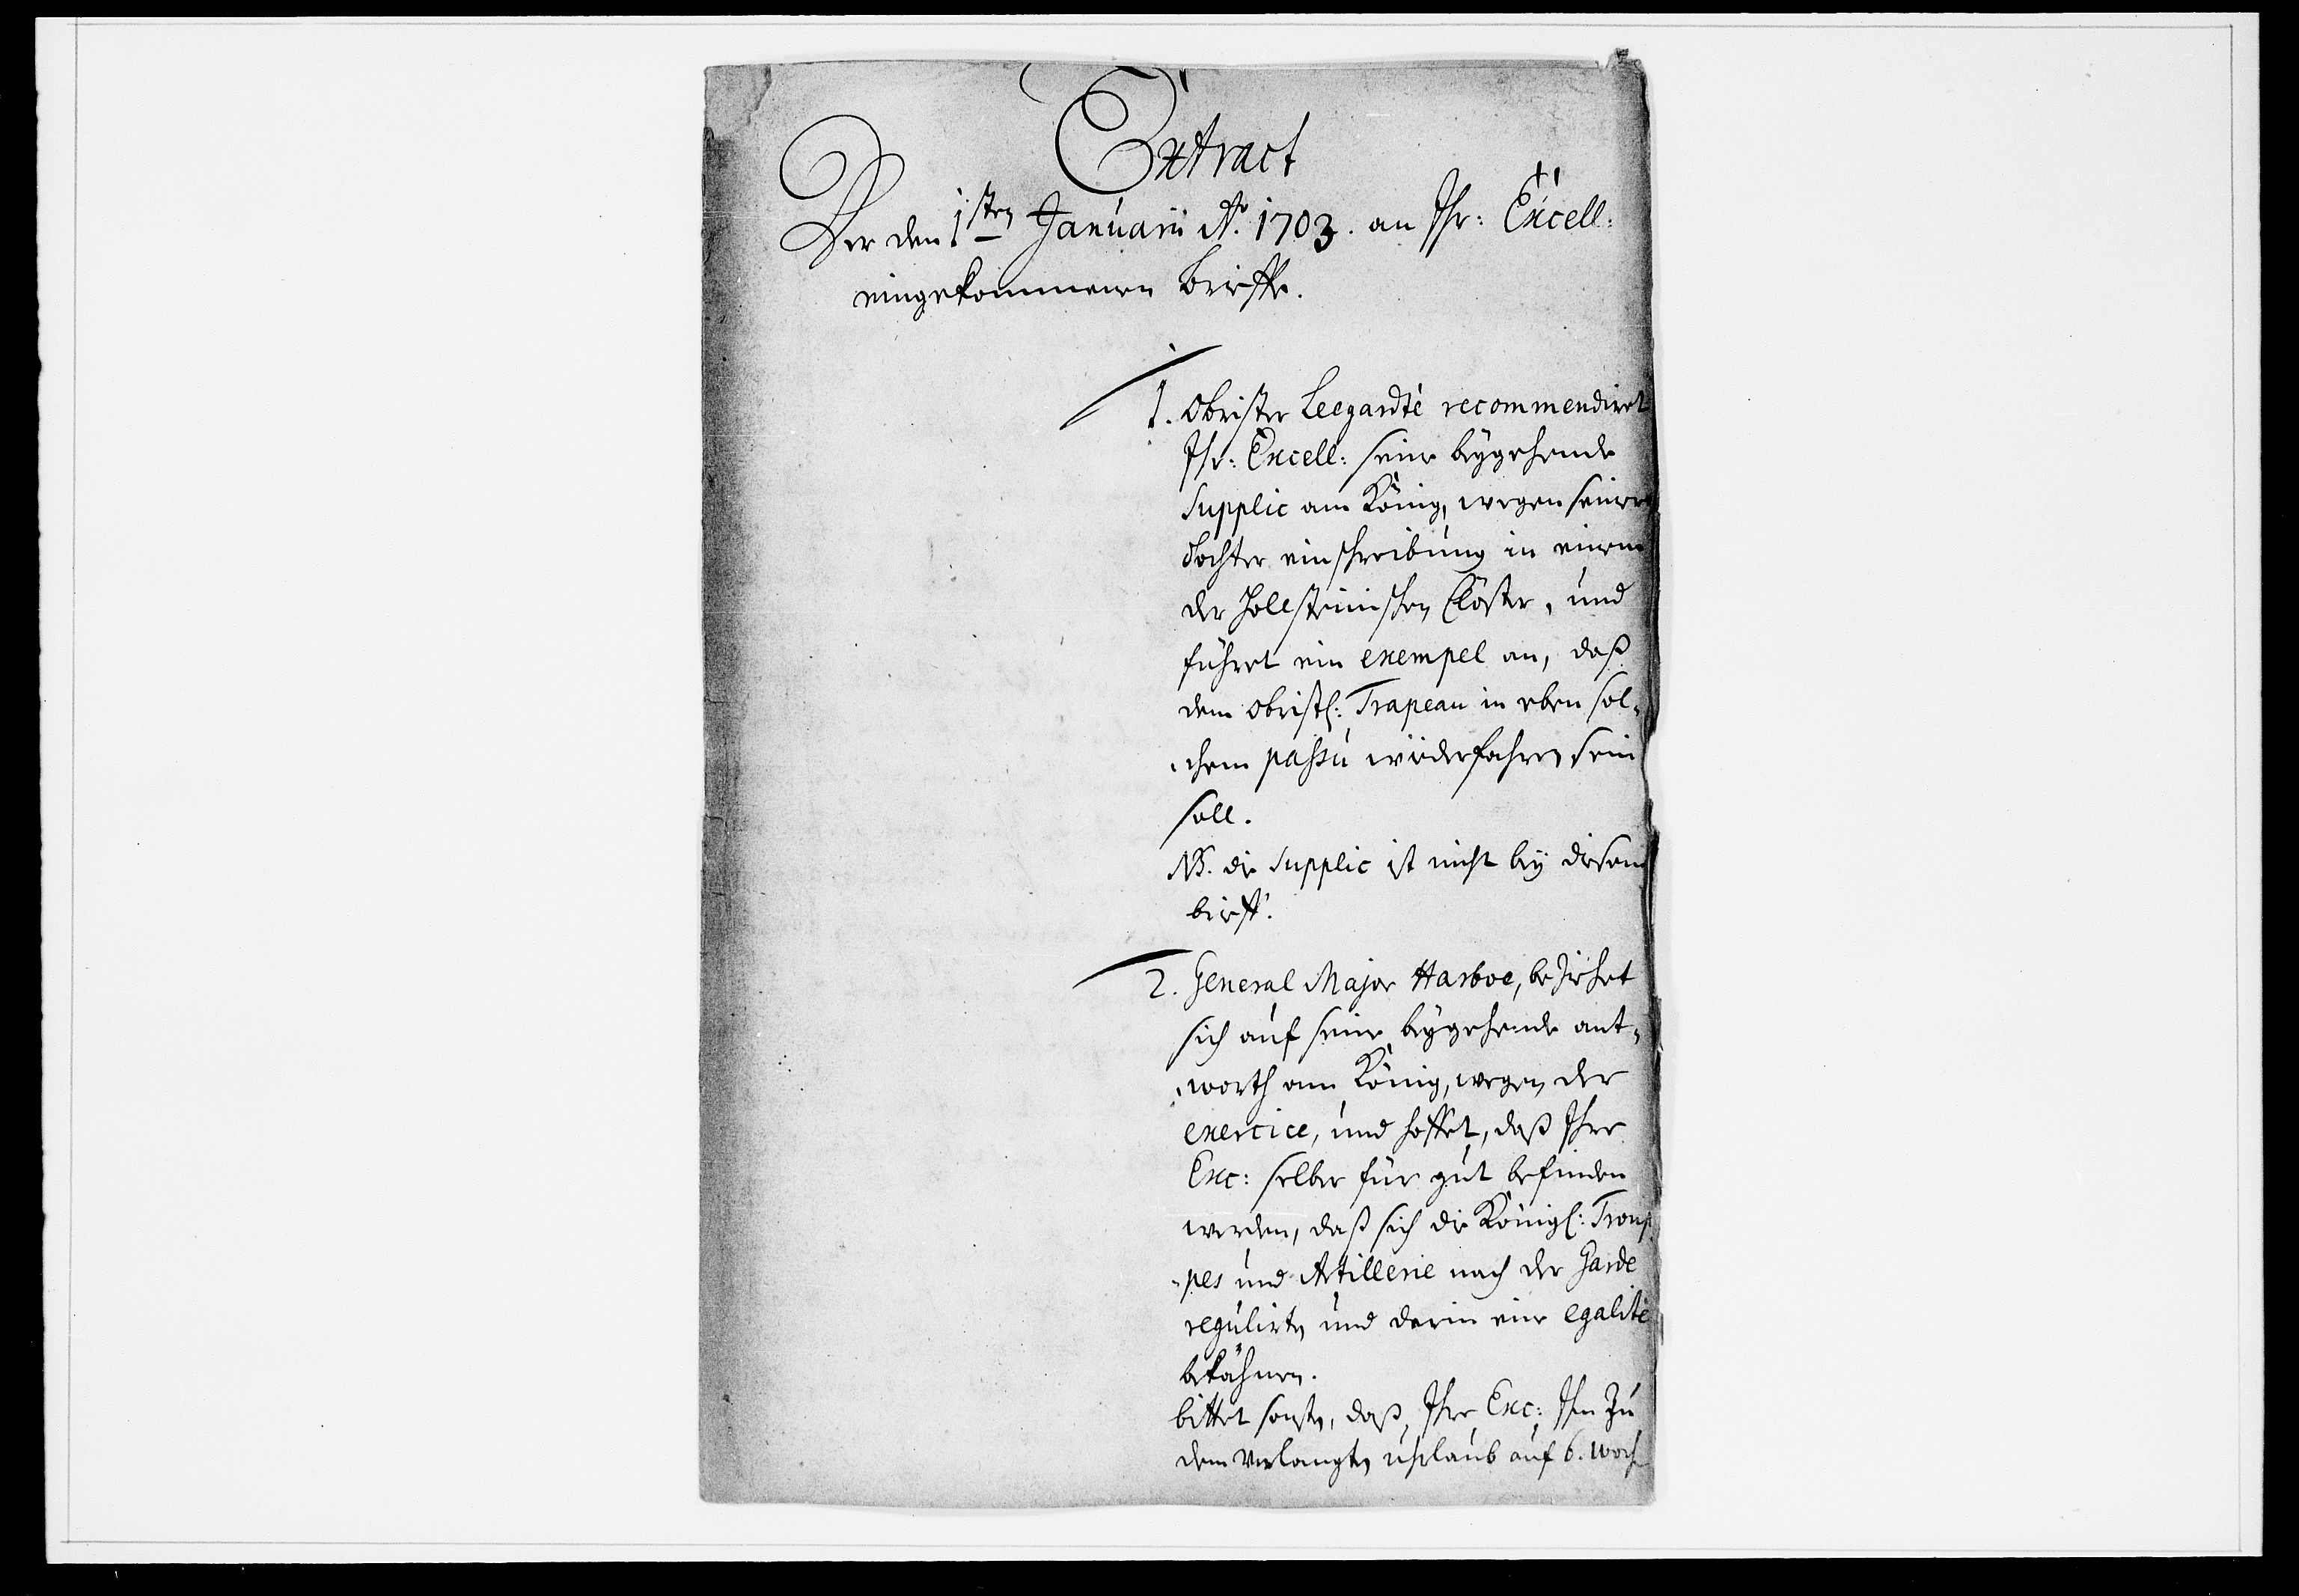 Extract
Der den 1sten Januarii Ao. 1703. an Ihr: Excell:
eingekommenen Brieffe.
1. Obrister Leegardté recommendiret
Ihr: Excell: seine beygehende
Supplic am König, wegen seiner
Tochter einschreibung in einem
der Hollsteinischen Clöster, und
führet ein exempel an, daß
dem Obristl: Trapeau in eben sol-
chem passu wiederfahren sein
soll.
NB. die Supplic ist nicht bey diesem
brieff.
2. General Major Harboe, beziehet
sich auf seine beygehende ant-
worth am König, wegen der
exercice, und hoffet, daß Ihre
Exc: selber für gut befinden
werden, daß sich die Königl: Troup-
pes und Artillerie nach der Garde
regulirten und darin eine egalité
bekähmen.
bittet sonsten, daß Ihre Exc: Ihm zu
dem verlangten uhrlaub auf 6. woch